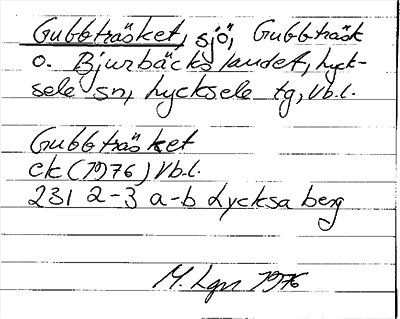 Gubbträsket, sjö, Gubbträsk
o. Bjurbäckslandet, Lyck-
sele sn, Lycksele tg, Vb.l.
Gubbträsket
ek (1976) Vb.l.
231 2-3 a-b Lycksaberg
M. Lgn 1976